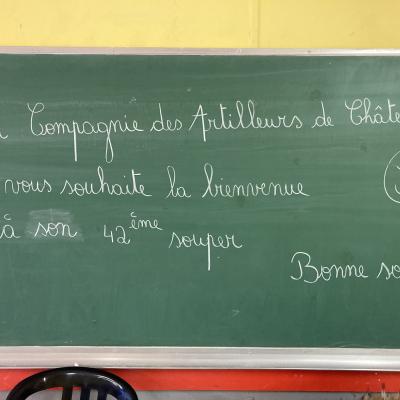 Compagnie des Artilleurs de Châte
vous souhaite la bienvenue
à son 42ème souper
Bonne so